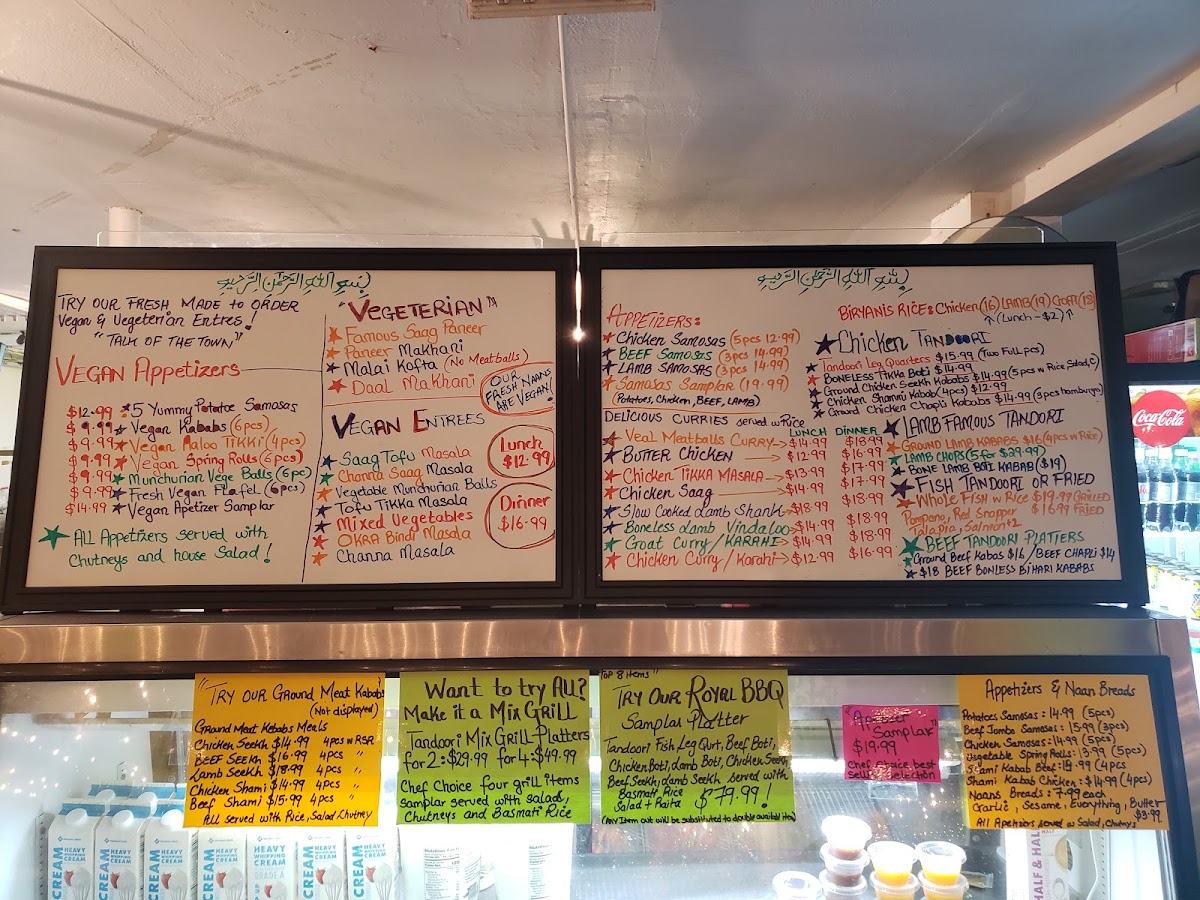 بسم الله الرحمن الرحيم
TRY OUR FRESH MADE to ORDER
Vegan & Vegeterian Entres!
"TALK OF THE TOWN"
VEGAN Appetizers
$12.99 5 Yummy Potatoe Samosas
$9.99 Vegan Kababs (6pcs)
$9.99 Vegan Aaloo TiKKi (4pcs)
$9.99 Vegan Spring Rolls (6pcs)
$9.99 Munchurian Vege Balls (6pc)
$9.99 Fresh Vegan Flafel (6pcs)
$14.99 Vegan Apetizer Samplar
ALL Appetizers served with
Chutneys and house Salad!
"VEGETERIAN"
Famous Saag Paneer
Paneer Makhani
Malai Kofta (No Meatballs)
Daal Makhani
OUR
FRESH NAANS
ARE VEGAN!
VEGAN ENTREES
Saag Tofu Masala
Channa Saag Masala
Vegetable Munchurian Balls
Tofu Tikka Masala
Mixed Vegetables
OKRA Bindi Masala
Channa Masala
Lunch
$12.99
Dinner
$16.99
بسم الله الرحمن الرحيم
APPETIZERS:
Chicken Samosas (5pcs 12.99)
BEEF Samosas (3pcs 14.99)
LAMB SAMOSAS (3pcs 14.99)
Samosas Samplar (19.99)
(Potatoes, Chicken, BEEF, LAMB)
DELICIOUS CURRIES served w Rice
LUNCH DINNER
Veal Meatballs CURRY $14.99 $18.99
BUTTER CHICKEN $12.99 $16.99
Chicken TIKKA MASALA $13.99 $17.99
Chicken Saag $14.99 $17.99
Slow Cooked Lamb Shank $18.99 $18.99
Boneless Lamb Vindaloo $14.99 $18.99
Goat Curry/KARAHI $14.99 $18.99
Chicken Curry/Karahi $12.99 $16.99
BIRYANIS RICE: Chicken (16) LAMB (19) GOAT (18)
↑ (Lunch - $2) ↑
Chicken TANDOORI
Tandoori Leg Quarters $15.99 (Two Full pcs)
BONELESS TIKKA Boti $14.99
Ground Chicken Seekh Kababs $14.99 (5pcs w Rice Salad,C)
Chicken Shammi Kabab (4pcs) $12.99
Ground Chicken Chapli Kababs $14.99 (3pcs hamburgers)
LAMB FAMOUS TANDOORI
GROUND LAMB KABABS $16 (4pcs w Rice)
LAMB CHOPS (5 for $29.99)
BONE LAMB BOTI KABAB ($19)
FISH TANDOORI OR FRIED
WHOLE FISH w RICE $19.99 GRILLED
Pompano, Red Snapper $16.99 FRIED
Talapia, Salmon+2
BEEF TANDOORI PLATTERS
Ground Beef Kabos $16 / BEEF CHAPLI $14
$18 BEEF BONLESS BIHARI KABABS
"TRY OUR Ground Meat Kabobs
(Not displayed)
Ground Meat Kebobs Meals
Chicken Seekh $14.99 4pcs w RSR
BEEF Seekh $16.99 4pcs "
Lamb Seekh $18.99 4pcs "
Chicken Shami $14.99 4pcs "
Beef Shami $15.99 4pcs "
All served with Rice, Salad, Chutney
Want to try All?
Make it a Mix GRILL
Tandoori Mix GRILL Platters
for 2: $29.99 for 4: $49.99
Chef Choice four grill items
samplar served with salads,
Chutneys and Basmati Rice
Top 8 items"
TRY OUR ROYAL BBQ
Samplar Platter
Tandoori Fish, Leg Qurt, Beef Boti,
Chicken Boti, Lamb Boti, Chicken Seekh
Beef Seekh, Lamb Seekh served with
Basmati Rice
Salad + Raita $79.99!
(Any Item out will be substituted to double available item)
Samplar"
$19.99
Chef Choice best
Selling Selection
Appetizers & Naan Breads
Potatoes Samosas: 14.99 (5pcs)
Beef Jambo Samosas: 15.99 (3pcs)
Chicken Samosas: 14.99 (5pcs)
Vegetable Spring Rolls: 13.99 (5pcs)
Shami Kabab Beef: (4pcs
Shami Kabab Chicken: $14.99 (4pcs)
Naans Breads: 7.99 each
Garlic, Sesame, Everything, Butter
$3.99
All Apetizers served w Salad, Chutnys
Coca-Cola
HEAVY
WHIPPING
CREAM
HALF & HALF